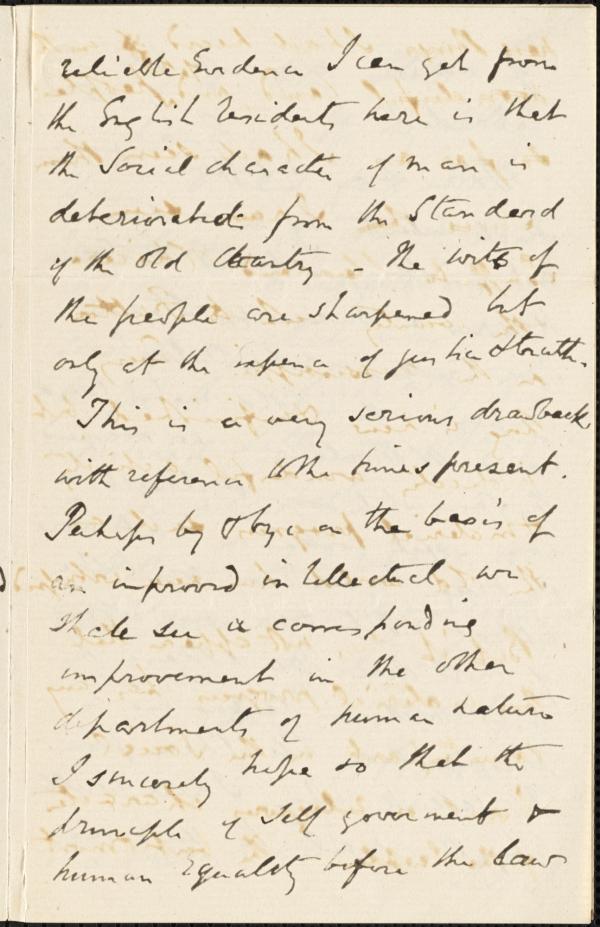 reliable Evidence I can get from
the English residents here is that
the Social character of man is
deteriorated from the Standard
of the Old Country - The wits of
the people are sharpened but
only at the expence of justice & truth.
This is a very serious drawback
with reference to the times present.
Perhaps by & bye on the basis of
an improved intellectual we
shale see a corresponding
improvement in the other
departments of human nature
I sincerely hope so that the
principle of Self goverment &
human Equality before the law